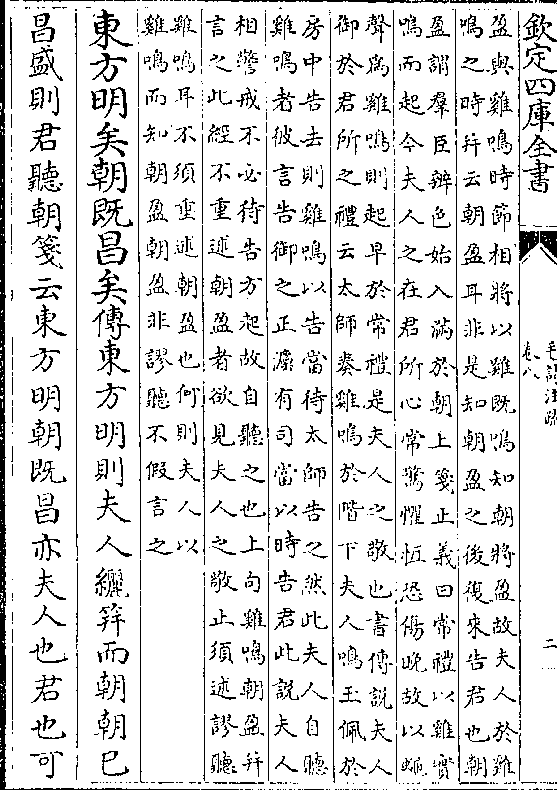 欽定四庫全書
毛詩注疏
卷八
二
盈與雞鳴時節相將以雞既鳴知朝將盈故夫人於雞
鳴之時并云朝盈耳非是知朝盈之後復來告君也朝
盈謂羣臣辨色始入滿於朝上箋正義曰常禮以雞實
鳴而起今夫人之在君所心常驚懼恒恐傷晚故以蠅
聲為雞鳴則起早於常禮是夫人之敬也書傳說夫人
御於君所之禮云太師奏雞鳴於階下夫人鳴玉佩於
房中告去則雞鳴以告當待太師告之然此夫人自聽
雞鳴者彼言告御之正灋有司當以時告君此說夫人
相警戒不必待告方起故自聽之也上句雞鳴朝盈并
言之此經不重述朝盈者欲見夫人之敬止須述謬聽
雞鳴耳不須重述朝盈也何則夫人以
雞鳴而知朝盈朝盈非謬聽不假言之
東方明矣朝既昌矣傳東方明則夫人纚笄而朝朝已
昌盛則君聽朝箋云東方明朝既昌亦夫人也君也可